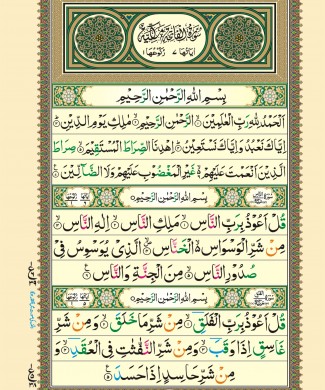 سُوْرَةُ الْفَاتِحَةِ مَكِّيَّةٌ
اٰيَاتُهَا ٧ رُكُوْعُهَا ١
بِسْمِ اللّٰهِ الرَّحْمٰنِ الرَّحِيْمِ
اَلْحَمْدُ لِلّٰهِ رَبِّ الْعٰلَمِيْنَ الرَّحْمٰنِ الرَّحِيْمِ مٰلِكِ يَوْمِ الدِّيْنِ
اِيَّاكَ نَعْبُدُ وَ اِيَّاكَ نَسْتَعِيْنُ اِهْدِنَا الصِّرَاطَ الْمُسْتَقِيْمَ صِرَاطَ
الَّذِيْنَ اَنْعَمْتَ عَلَيْهِمْ غَيْرِ الْمَغْضُوْبِ عَلَيْهِمْ وَلَا الضَّآلِّيْنَ
بِسْمِ اللّٰهِ الرَّحْمٰنِ الرَّحِيْمِ
قُلْ اَعُوْذُ بِرَبِّ النَّاسِ مَلِكِ النَّاسِ اِلٰهِ النَّاسِ
مِنْ شَرِّ الْوَسْوَاسِ الْخَنَّاسِ الَّذِيْ يُوَسْوِسُ فِيْ
صُدُوْرِ النَّاسِ مِنَ الْجِنَّةِ وَ النَّاسِ
بِسْمِ اللّٰهِ الرَّحْمٰنِ الرَّحِيْمِ
قُلْ اَعُوْذُ بِرَبِّ الْفَلَقِ مِنْ شَرِّ مَا خَلَقَ وَ مِنْ شَرِّ
غَاسِقٍ اِذَا وَقَبَ وَ مِنْ شَرِّ النَّفّٰثٰتِ فِي الْعُقَدِ وَ
مِنْ شَرِّ حَاسِدٍ اِذَا حَسَدَ